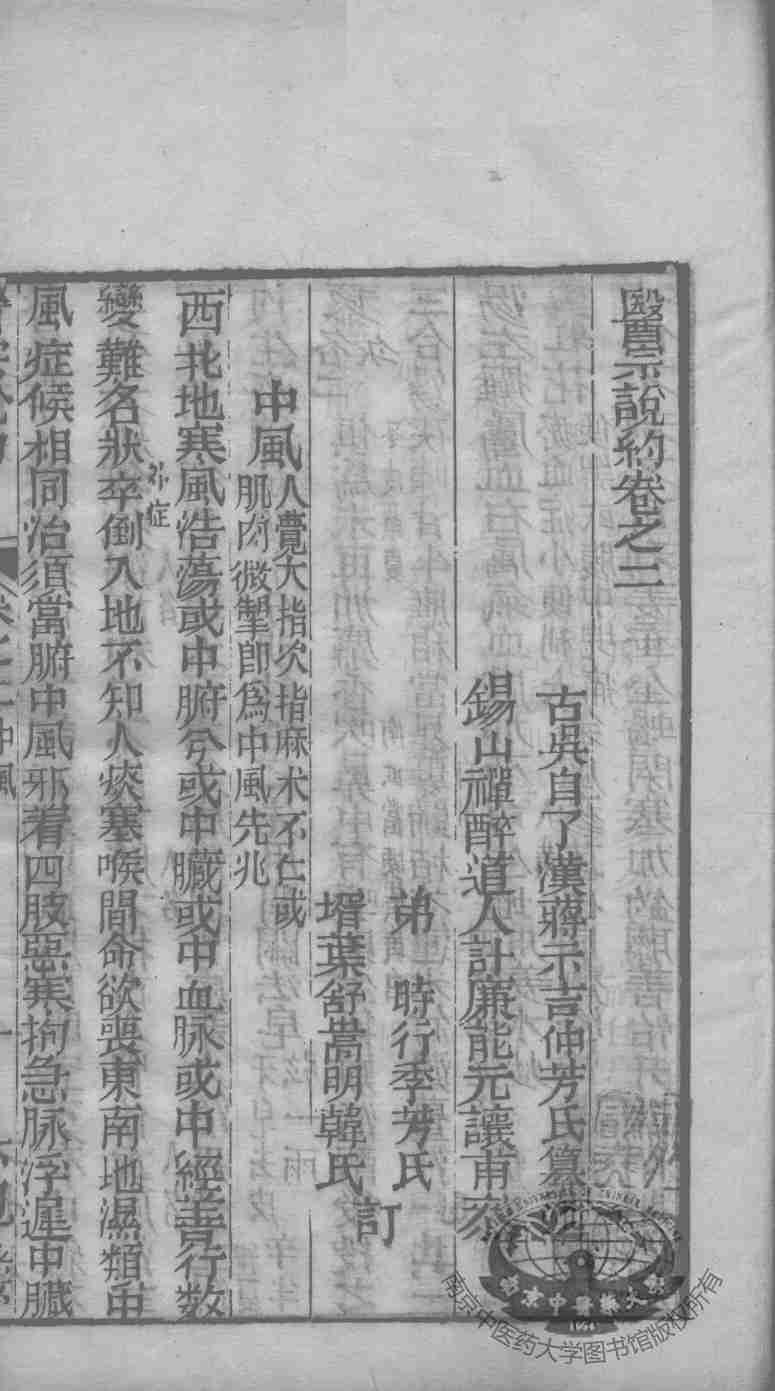 醫宗說約卷之三
古吳自了漢蔣示吉仲芳氏纂
錫山禪醉道人計廉能元讓甫
弟 時行季芳氏
壻葉舒嵩明韓氏
訂
中風
人覺大指次指麻木不仁或
肌肉微掣即爲中風先兆
西北地寒風浩蕩或中腑兮或中臟或中血脉或中經善行数
變難名狀卒倒入地不知人痰塞喉間命欲喪東南地濕類中
外症
風症候相同治須當腑中風邪着四肢惡寒拘急脉浮遲中臟
卷之三中風
南京中医药大学图书馆版权所有